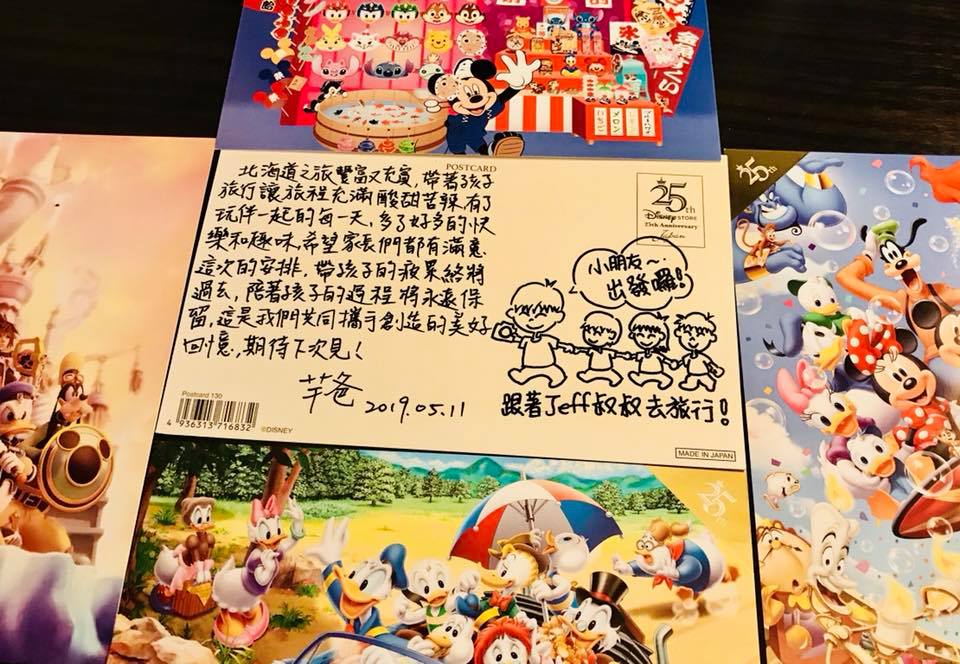 氷
金魚すくい
メロン
25th
POSTCARD
北海道之旅豐富又充實,帶著孩子
旅行讓旅程充滿酸甜苦辣.有了
玩伴一起的每一天、多了好多的快
樂和趣味.希望家長們都有滿意
這次的安排,帶孩子的疲累終將
過去,陪著孩子的過程將永遠保
留,這是我們共同攜手創造的美好
回憶,期待下次見!
芊爸 2019.05.11
25th
Disney STORE
25th Anniversary
Japan
小朋友~
出發囉!
跟著Jeff叔叔去旅行!
Postcard 130
4 936313 716832
©DISNEY
MADE IN JAPAN
25th